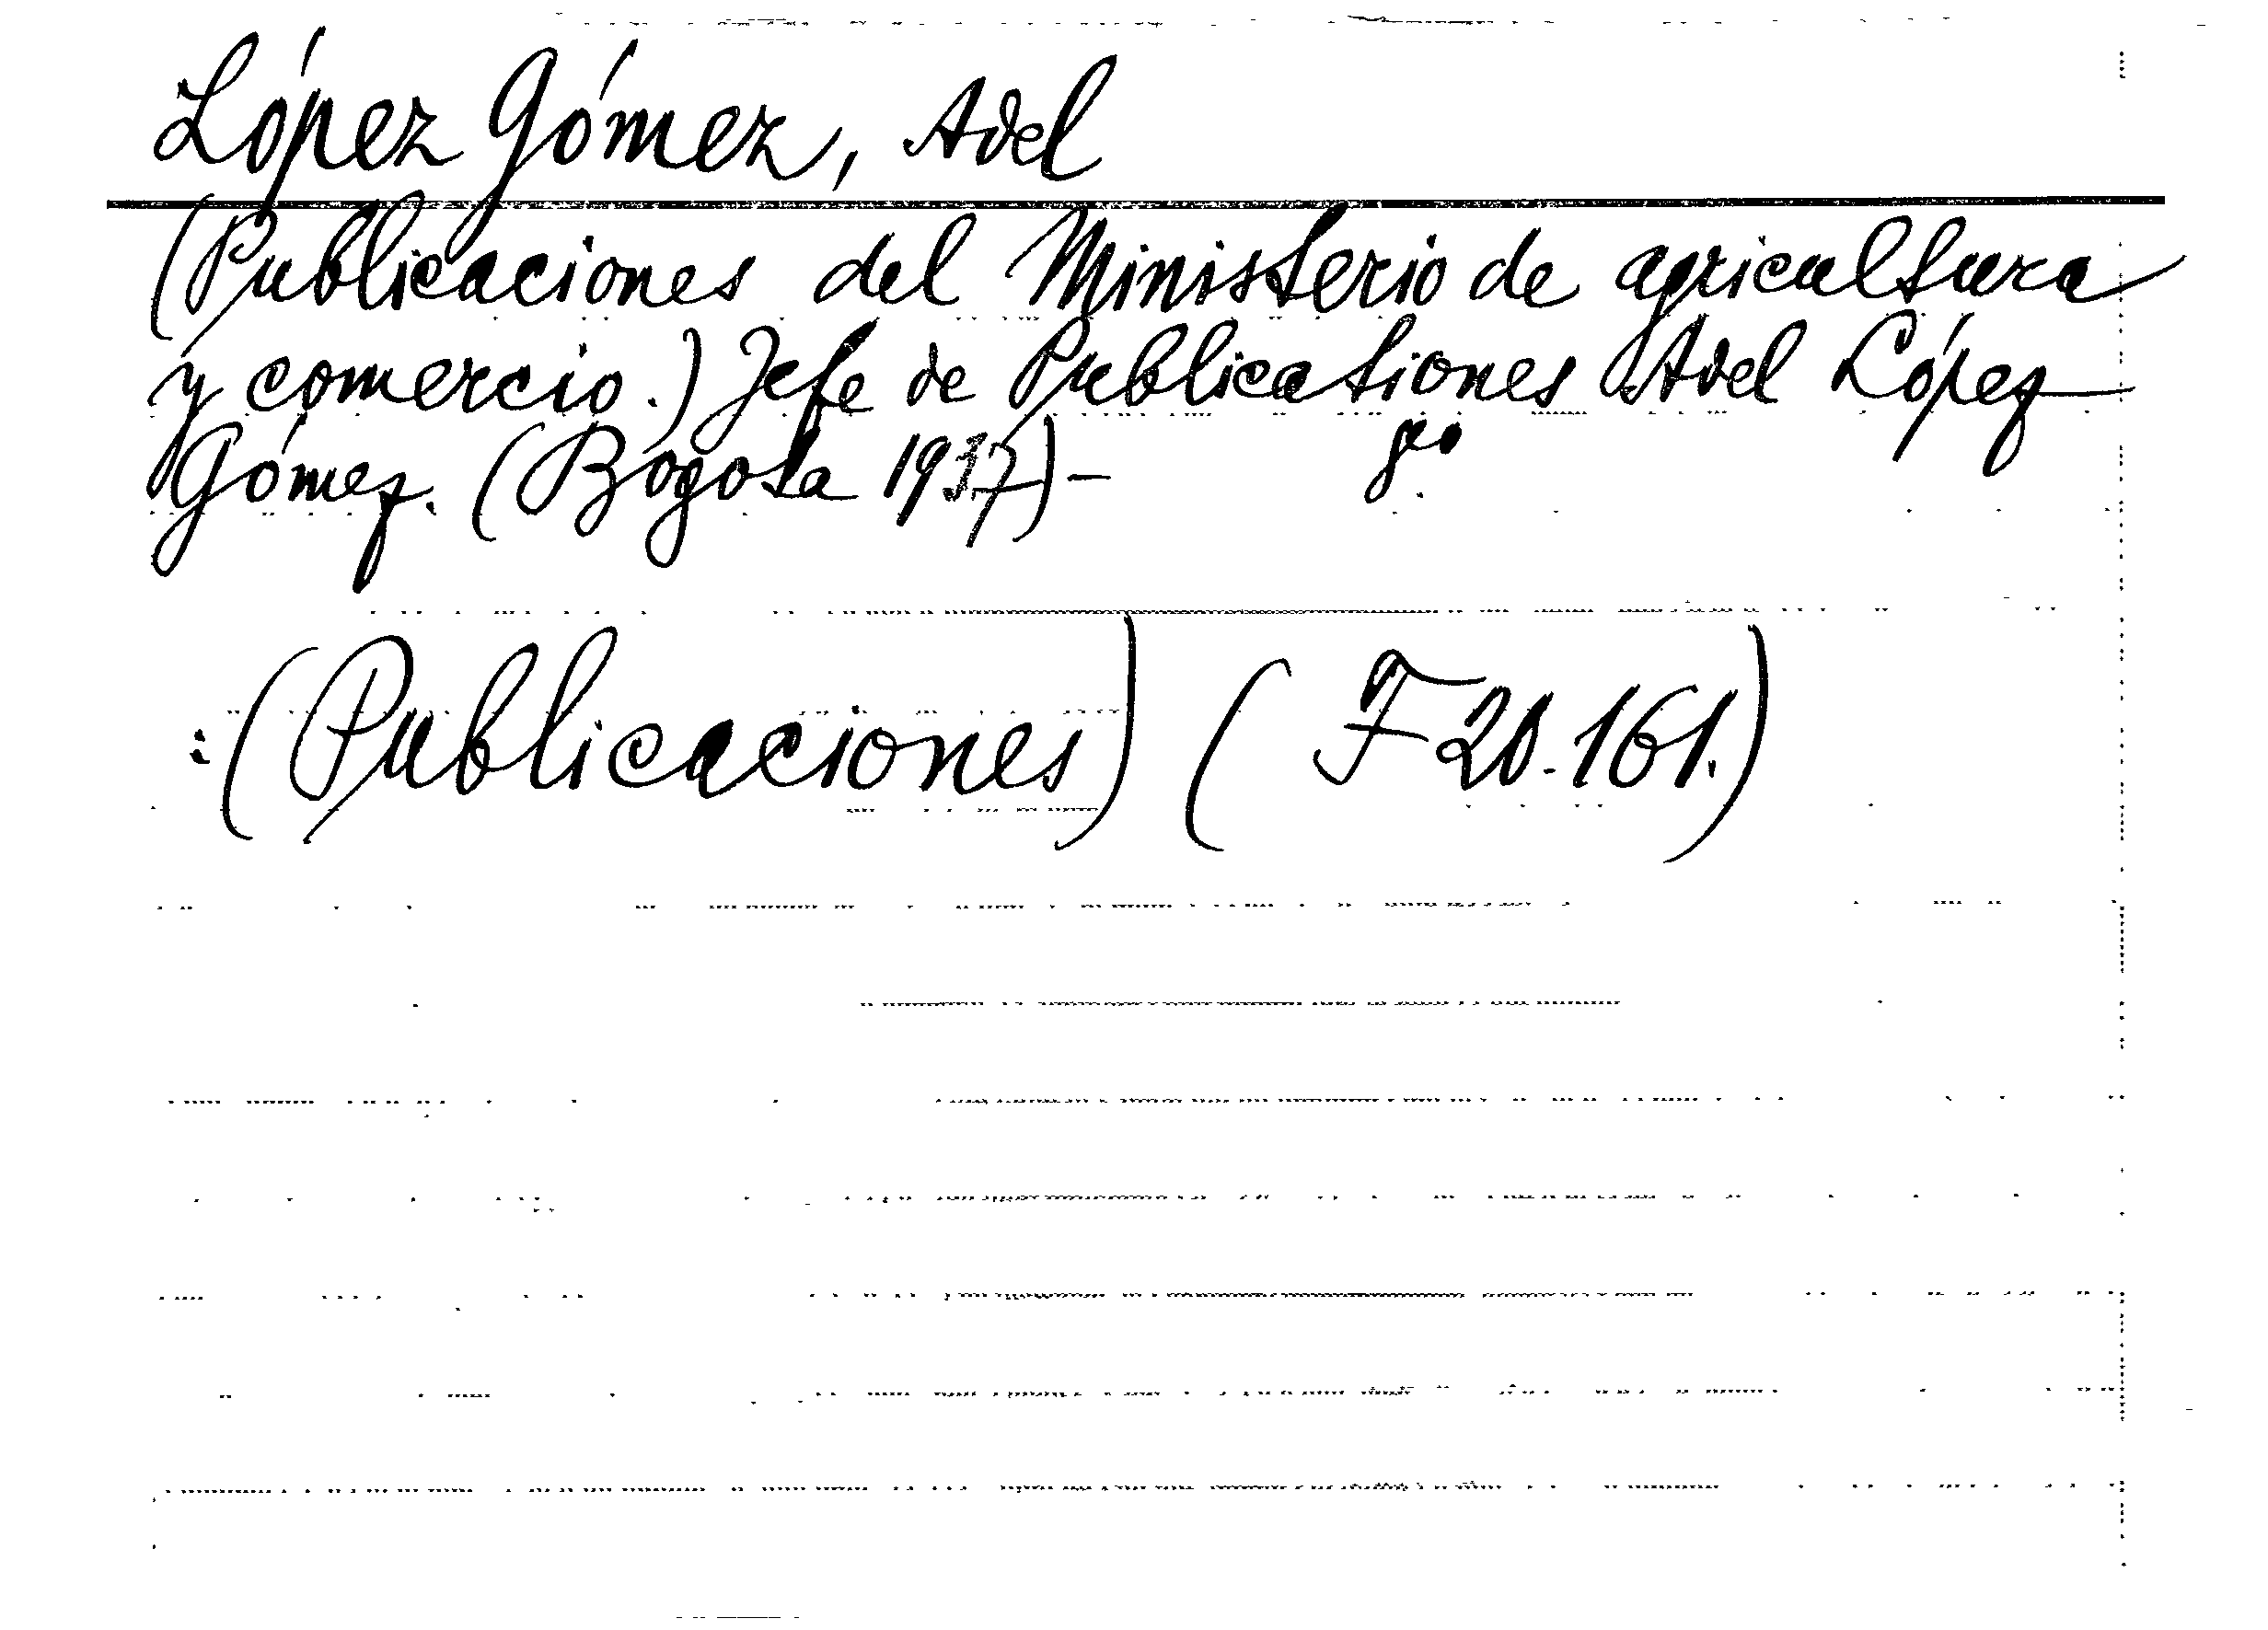 López Gómez, Adel
(Publicaciones del Ministerio de agricultura
y comercio.) Jefe de Publicationes Adel López
Gómez. (Bogota 1937)- 8º.
:(Publicaciones) (F 20.161.)